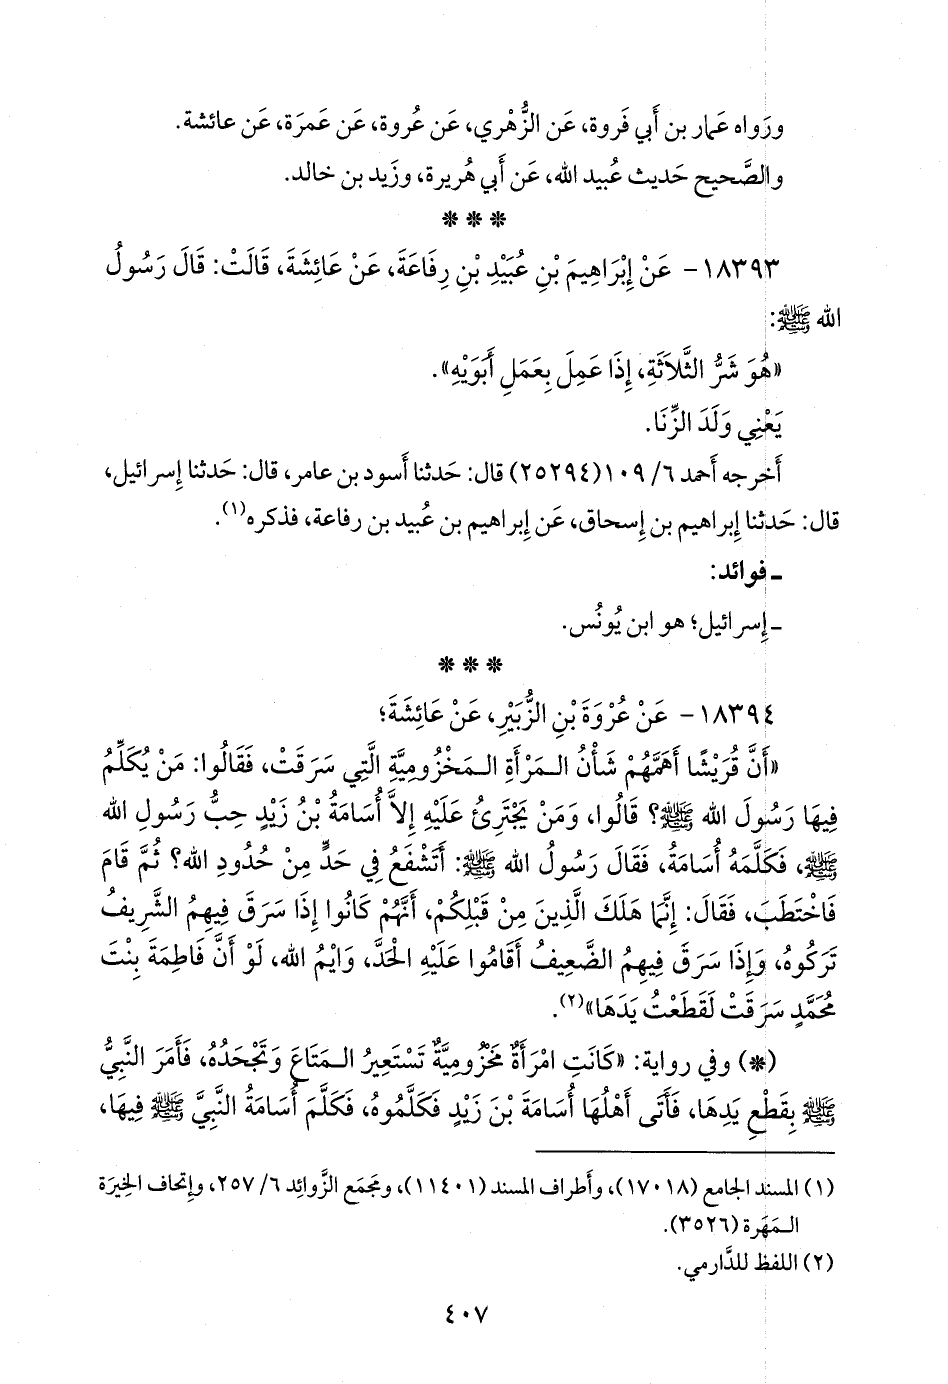 ورَواه عَمار بن أَبي فَروة، عَن الزُّهْري، عَن عُروة، عَن عَمرَة، عَن عائشة.
والصَّحيح حَديث عُبيد الله، عَن أَبي هُريرة، وزَيد بن خالد.
* * *
١٨٣٩٣- عَنْ إِبْرَاهِيمَ بْنِ عُبَيْدِ بْنِ رِفَاعَةَ، عَنْ عَائِشَةَ، قَالَتْ: قَالَ رَسُولُ
الله ﷺ:
«هُوَ شَرُّ الثَّلاَثَةِ، إِذَا عَمِلَ بِعَمَلِ أَبَوَيْهِ».
يَعْنِي وَلَدَ الزِّنَا.
أَخرجه أَحمد ٦/ ١٠٩(٢٥٢٩٤) قال: حَدثنا أَسود بن عامر، قال: حَدثنا إِسرائيل،
قال: حَدثنا إِبراهيم بن إِسحاق، عَن إِبراهيم بن عُبيد بن رفاعة، فذكره(١).
ـ فوائد:
ـ إِسرائيل؛ هو ابن يُونُس.
* * *
١٨٣٩٤- عَنْ عُرْوَةَ بْنِ الزُّبَيْرِ، عَنْ عَائِشَةَ؛
«أَنَّ قُرَيْشًا أَهَمَّهُمْ شَأْنُ الـمَرْأَةِ الـمَخْزُومِيَّةِ الَّتِي سَرَقَتْ، فَقَالُوا: مَنْ يُكَلِّمُ
فِيهَا رَسُولَ الله ﷺ؟ قَالُوا، وَمَنْ يَجْتَرِئُ عَلَيْهِ إِلاَّ أُسَامَةُ بْنُ زَيْدٍ حِبُّ رَسُولِ الله
ﷺ، فَكَلَّمَهُ أُسَامَةُ، فَقَالَ رَسُولُ الله ﷺ: أَتَشْفَعُ فِي حَدٍّ مِنْ حُدُودِ الله؟ ثُمَّ قَامَ
فَاخْتَطَبَ، فَقَالَ: إِنَّمَا هَلَكَ الَّذِينَ مِنْ قَبْلِكُمْ، أَنَّهُمْ كَانُوا إِذَا سَرَقَ فِيهِمُ الشَّرِيفُ
تَرَكُوهُ، وَإِذَا سَرَقَ فِيهِمُ الضَّعِيفُ أَقَامُوا عَلَيْهِ الْحَدَّ، وَايْمُ الله، لَوْ أَنَّ فَاطِمَةَ بِنْتَ
مُحَمَّدٍ سَرَقَتْ لَقَطَعْتُ يَدَهَا»(٢).
(*) وفي رواية: «كَانَتِ امْرَأَةٌ مَخْزُومِيَّةٌ تَسْتَعِيرُ الـمَتَاعَ وَتَجْحَدُهُ، فَأَمَرَ النَّبِيُّ
ﷺ بِقَطْعِ يَدِهَا، فَأَتَى أَهْلُهَا أُسَامَةَ بْنَ زَيْدٍ فَكَلَّمُوهُ، فَكَلَّمَ أُسَامَةُ النَّبِيَّ ﷺ فِيهَا،
(١) المسند الجامع (١٧٠١٨)، وأَطراف المسند (١١٤٠١)، ومجمَع الزَّوائِد ٦/ ٢٥٧، وإِتحاف الخِيرَة
الـمَهَرة (٣٥٢٦).
(٢) اللفظ للدَّارمي.
٤٠٧